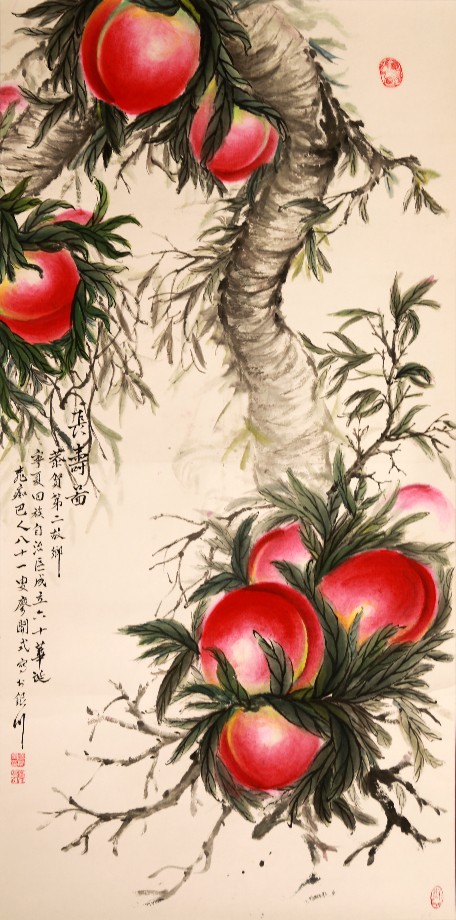 長壽啚
恭賀第二故鄉
寧夏回族自治區成立六十華誕
巴人八十一叟廖開式寫於銀川